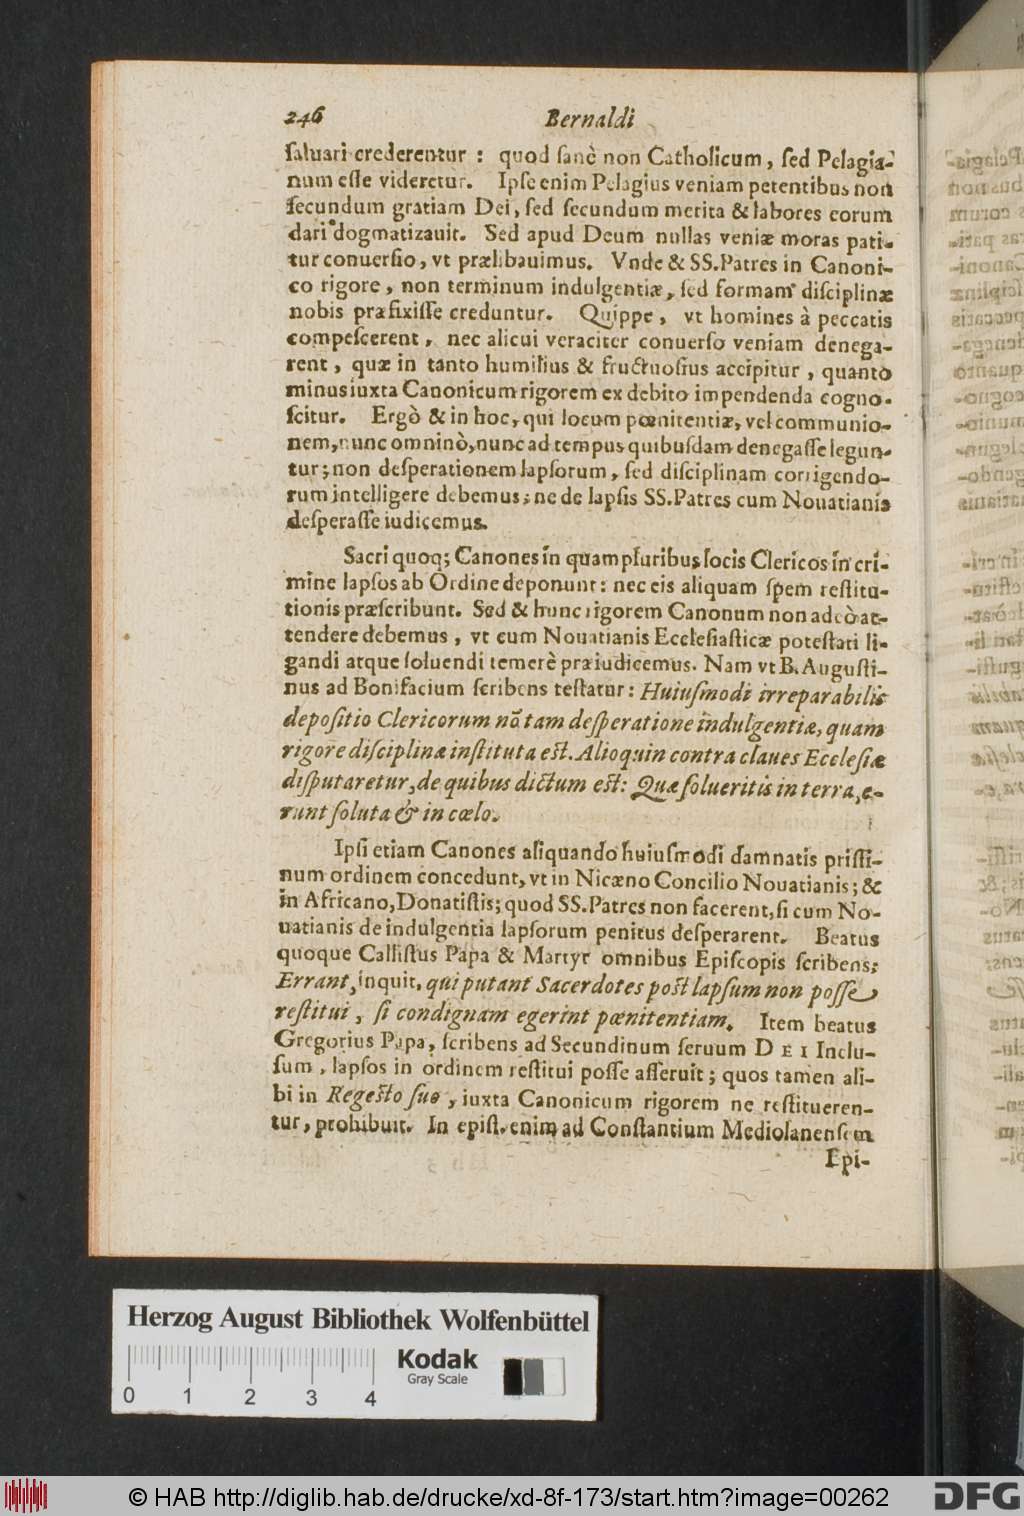 246 Bernaldi
ſaluari crederentur : quod ſanè non Catholicum, ſed Pelagia-
num eſſe videretur. Ipſe enim Pelagius veniam petentibus non
ſecundum gratiam Dei, ſed ſecundum merita & labores eorum
dari dogmatizauit. Sed apud Deum nullas veniæ moras pati-
tur conuerſio, vt prælibauimus. Vnde & SS. Patres in Canoni-
co rigore, non terminum indulgentiæ, ſed formam diſciplinæ
nobis præfixiſſe creduntur. Quippe, vt homines à peccatis
compeſcerent, nec alicui veraciter conuerſo veniam denega-
rent, quæ in tanto humilius & fructuoſius accipitur, quantò
minus iuxta Canonicum rigorem ex debito impendenda cogno-
ſcitur. Ergò & in hoc, qui locum pœnitentiæ, vel communio-
nem, nunc omninò, nunc ad tempus quibuſdam denegaſſe legun-
tur; non deſperationem lapſorum, ſed diſciplinam corrigendo-
rum intelligere debemus; ne de lapſis SS. Patres cum Nouatianis
deſperaſſe iudicemus.
Sacri quoq; Canones in quampluribus locis Clericos in cri-
mine lapſos ab Ordine deponunt: nec eis aliquam ſpem reſtitu-
tionis præſcribunt. Sed & hunc rigorem Canonum non adeò at-
tendere debemus, vt cum Nouatianis Eccleſiaſticæ poteſtati li-
gandi atque ſoluendi temerè præiudicemus. Nam vt B. Auguſti-
nus ad Bonifacium ſcribens teſtatur: Huiuſmodi irreparabilis
depoſitio Clericorum nõ tam deſperatione indulgentiæ, quam
rigore diſciplinæ inſtituta eſt. Alioquin contra claues Eccleſiæ
diſputaretur, de quibus dictum eſt: Quæ ſolueritis in terra, e-
runt ſoluta & in cœlo.
Ipſi etiam Canones aliquando huiuſmodi damnatis priſti-
num ordinem concedunt, vt in Nicæno Concilio Nouatianis; &
in Africano, Donatiſtis; quod SS. Patres non facerent, ſi cum No-
uatianis de indulgentia lapſorum penitus deſperarent. Beatus
quoque Calliſtus Papa & Martyr omnibus Epiſcopis ſcribens;
Errant, inquit, qui putant Sacerdotes poſt lapſum non poſſe
reſtitui, ſi condignam egerint pœnitentiam. Item beatus
Gregorius Papa, ſcribens ad Secundinum ſeruum DEI Inclu-
ſum, lapſos in ordinem reſtitui poſſe aſſeruit; quos tamen ali-
bi in Regeſto ſuo, iuxta Canonicum rigorem ne reſtitueren-
tur, prohibuit. In epiſt. enim ad Conſtantium Mediolanenſem
Epi-
Herzog August Bibliothek Wolfenbüttel
Kodak
Gray Scale
0 1 2 3 4
© HAB http://diglib.hab.de/drucke/xd-8f-173/start.htm?image=00262
DFG